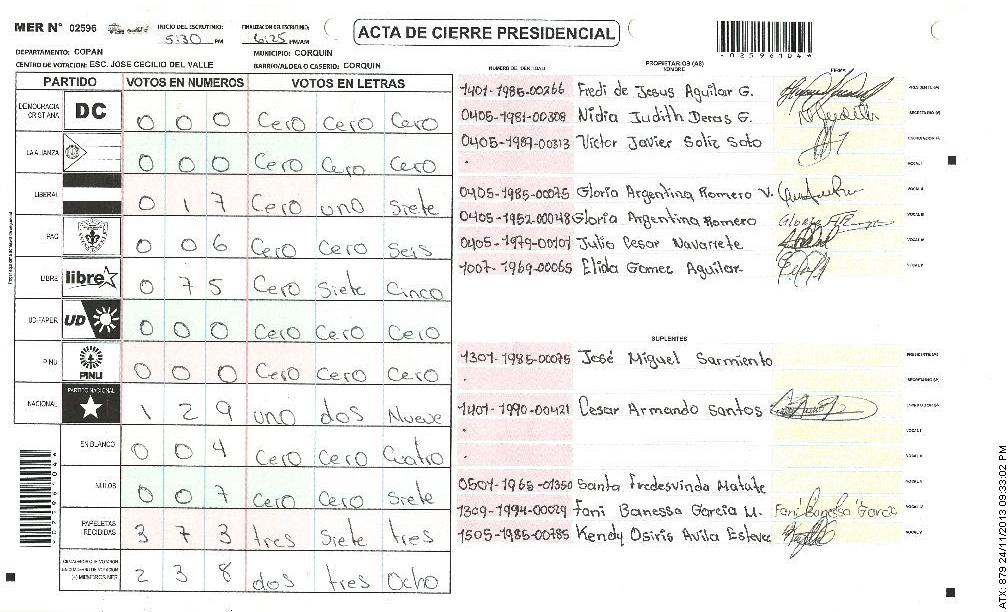 MER N° 02596 INICIO DEL ESCRUTINIO: 5:30 PM FINALIZACION DEL ESCRUTINIO: 6:25 PM/AM
ACTA DE CIERRE PRESIDENCIAL
*02596104*
DEPARTAMENTO: COPAN MUNICIPIO: CORQUIN
CENTRO DE VOTACION: ESC. JOSE CECILIO DEL VALLE BARRIO/ALDEA O CASERIO: CORQUIN
PARTIDO VOTOS EN NUMEROS VOTOS EN LETRAS
DEMOCRACIA CRISTIANA DC 0 0 0 Cero Cero Cero
LA ALIANZA 0 0 0 Cero Cero Cero
LIBERAL 0 1 7 Cero uno Siete
PAC 0 0 6 Cero Cero Seis
LIBRE libre 0 7 5 Cero Siete Cinco
UD-FAPER UD 0 0 0 Cero Cero Cero
PINU PINU 0 0 0 Cero Cero Cero
NACIONAL PARTIDO NACIONAL 1 2 9 uno dos Nueve
EN BLANCO 0 0 4 Cero Cero Cuatro
NULOS 0 0 7 Cero Cero Siete
PAPELETAS RECIBIDAS 3 7 3 tres Siete tres
CIUDADANOS QUE VOTARON EN CUADERNO DE VOTACION (+) MIEMBROS MER 2 3 8 dos tres Ocho
NUMERO DE IDENTIDAD PROPIETARIOS (AS) NOMBRE FIRMA
1401-1985-00266 Fredi de Jesus Aguilar G. PRESIDENTE (A)
0405-1981-00308 Nidia Judith Deras G. SECRETARIO (A)
0405-1987-00313 Victor Javier Soliz Soto ESCRUTADOR (A)
VOCAL I
0405-1985-00075 Gloria Argentina Romero V. VOCAL II
0405-1952-00048 Gloria Argentina Romero VOCAL III
0405-1979-00101 Julio Cesar Navarrete VOCAL IV
1007-1969-00065 Elida Gomez Aguilar VOCAL V
SUPLENTES
1301-1985-00075 José Miguel Sarmiento PRESIDENTE (A)
SECRETARIO (A)
1401-1990-00421 Cesar Armando Santos ESCRUTADOR (A)
VOCAL I
VOCAL II
0501-1965-01350 Santa Fredesvinda Matute VOCAL III
1309-1994-00029 Fani Banessa Garcia M. Fani Banessa Garcia VOCAL IV
1505-1985-00785 Kendy Osiris Avila Esteve VOCAL V
ATX: 879 24/11/2013 09:33:02 PM